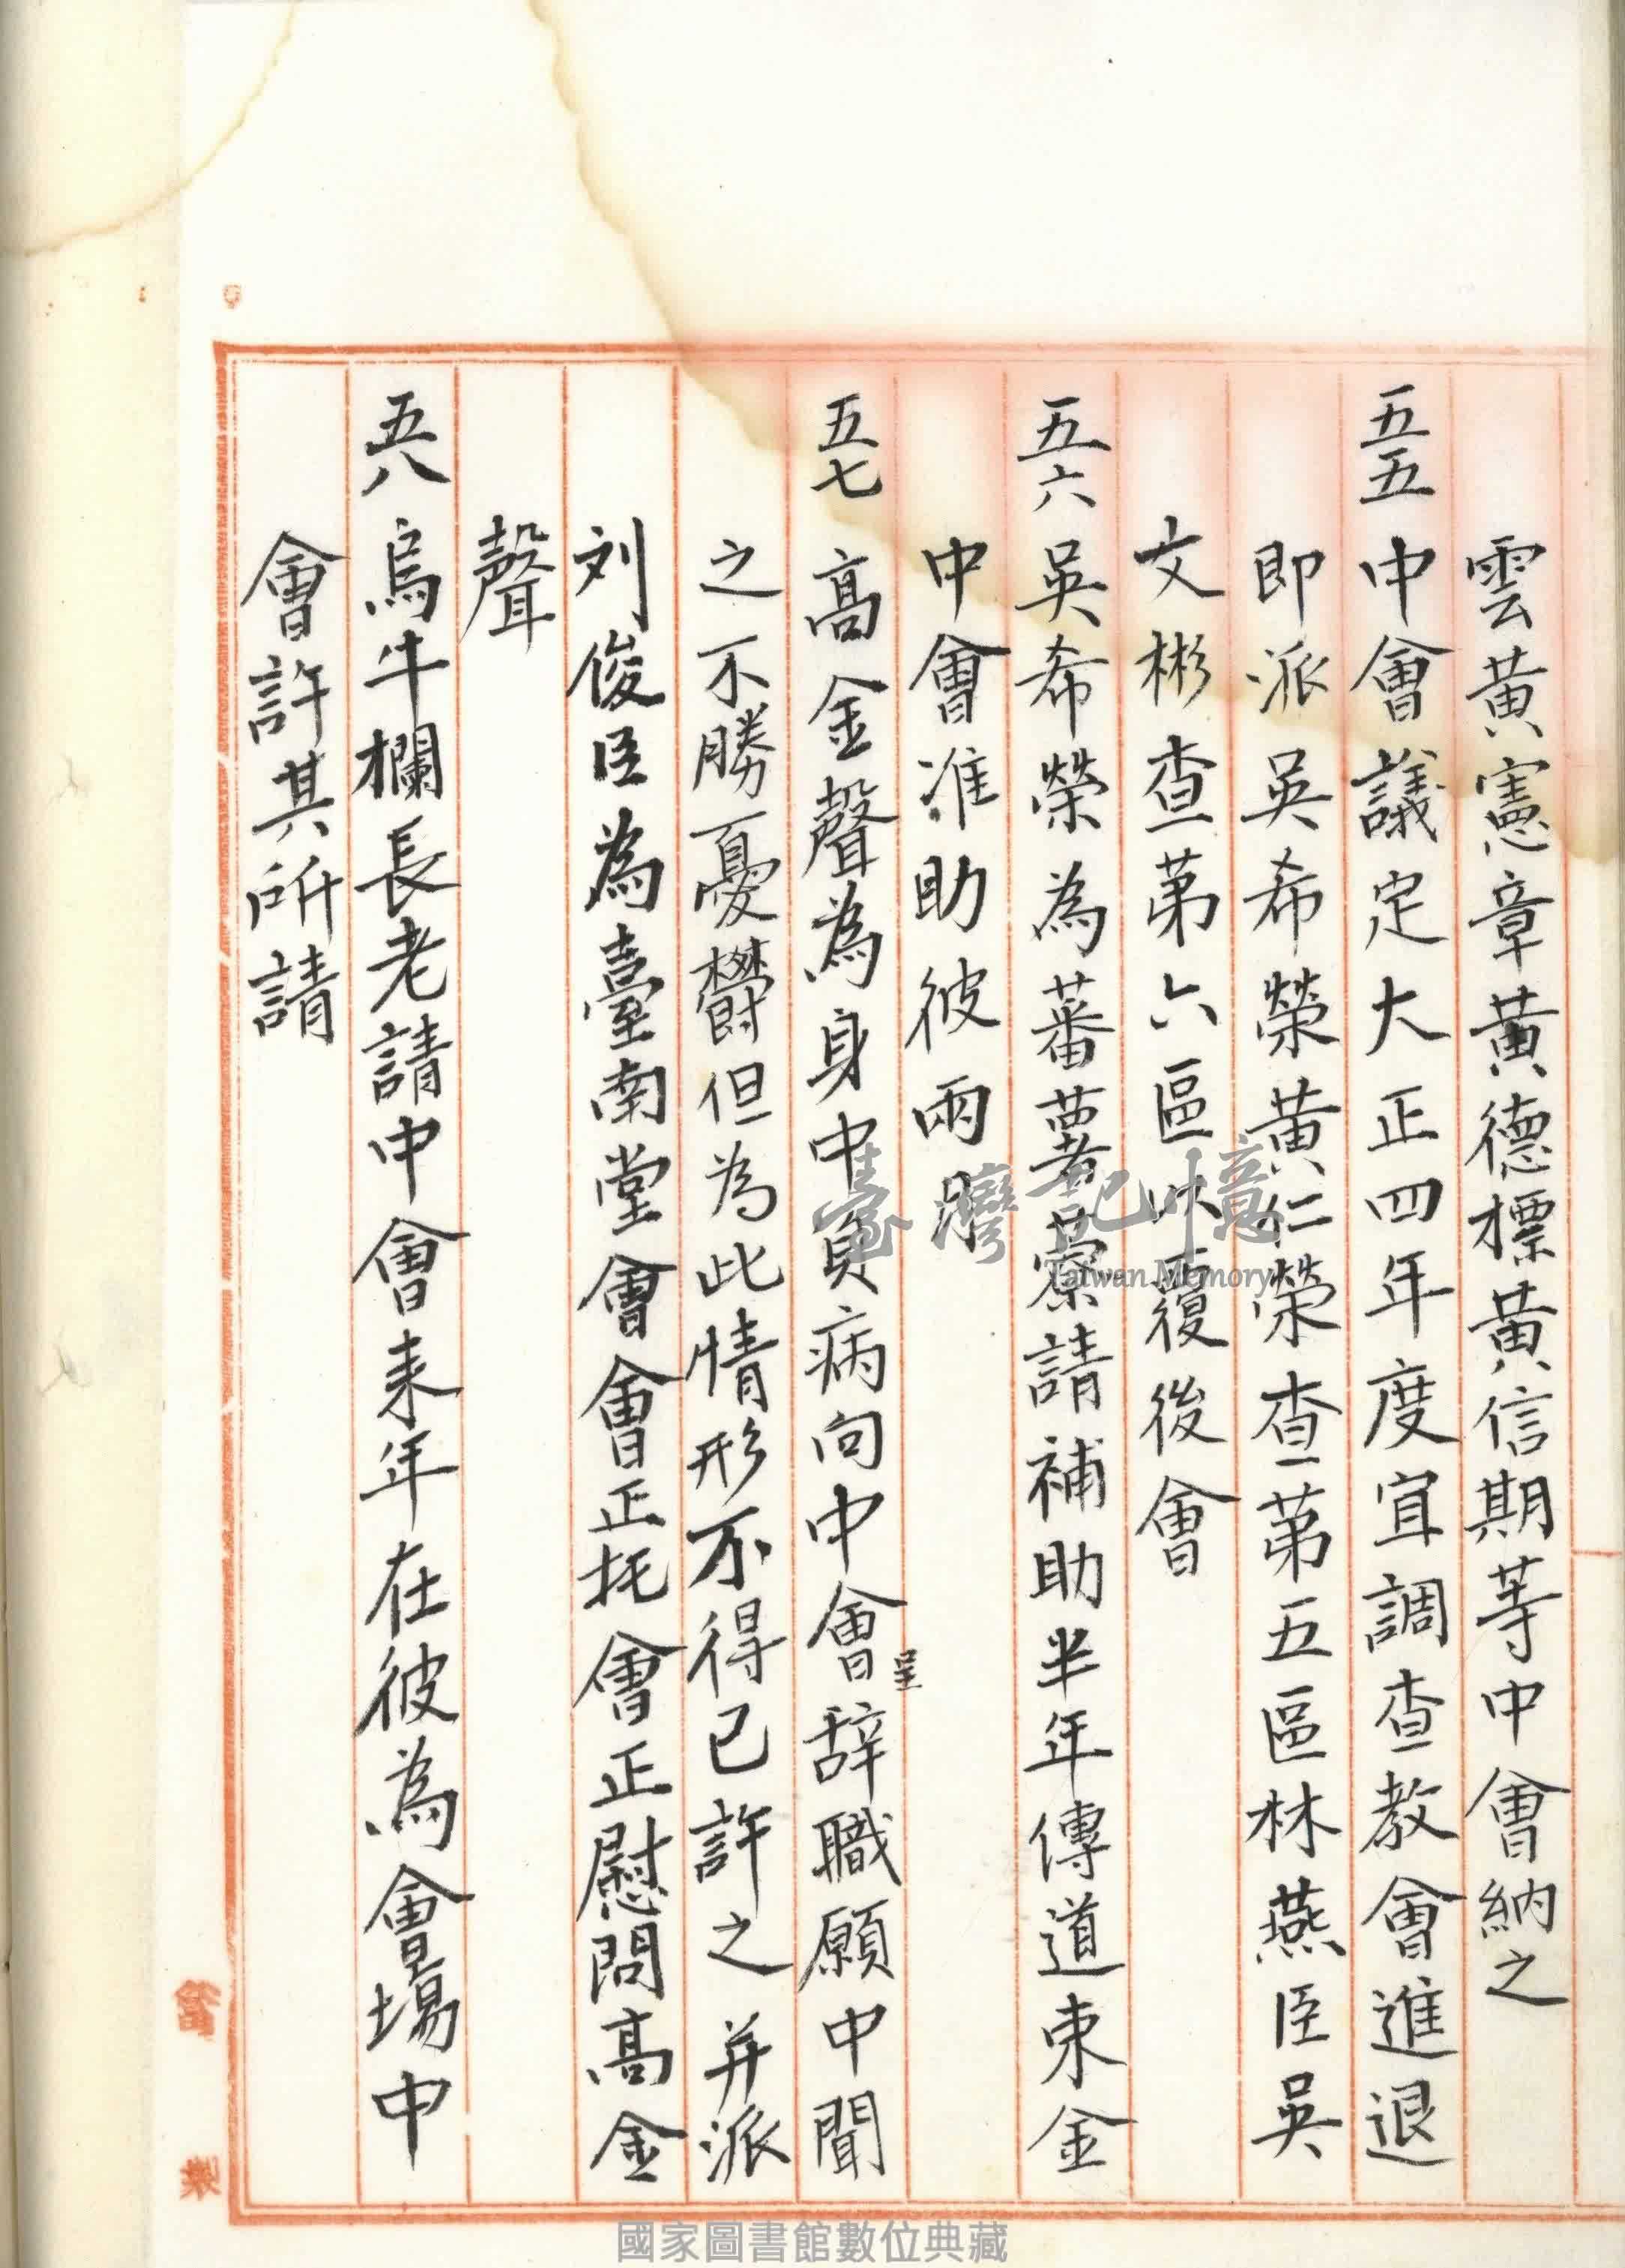 雲黃憲章黃德標黃信期等中會納之
五五 中會議定大正四年度宜調查教會進退
即派吳希榮黃仁榮查第五區林燕臣吳
文彬查第六區以覆後會
五六 吳希榮為蕃薯藔請補助半年傳道束金
中會准助彼兩月
五七 高金聲為身中負病向中會呈辞職願中聞
之不勝憂欝但為此情形不得已許之并派
刘俊臣為臺南堂會會正托會正慰問高金
聲
五八 烏牛欄長老請中會来年在彼為會場中
會許其所請
製
臺灣記憶
Taiwan Memory
國家圖書館數位典藏